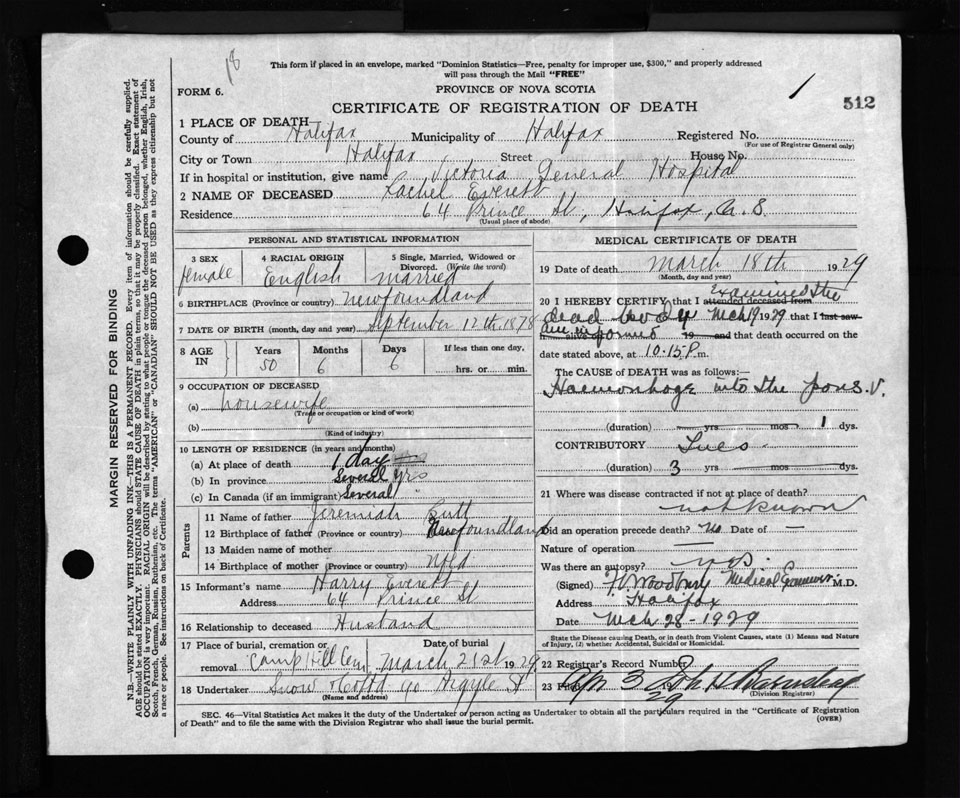 18
This form if placed in an envelope, marked "Dominion Statistics—Free, penalty for improper use, $300," and properly addressed
will pass through the Mail "FREE"
1
512
FORM 6.
PROVINCE OF NOVA SCOTIA
CERTIFICATE OF REGISTRATION OF DEATH
1 PLACE OF DEATH
County of Halifax Municipality of Halifax Registered No.
(For use of Registrar General only)
City or Town Halifax Street House No.
If in hospital or institution, give name Victoria General Hospital
2 NAME OF DECEASED Rachel Everett
Residence 64 Prince St, Halifax,
(Usual place of abode)
PERSONAL AND STATISTICAL INFORMATION
3 SEX 4 RACIAL ORIGIN 5 Single, Married, Widowed or
Divorced. (Write the word)
female English Married
6 BIRTHPLACE (Province or country) Newfoundland
7 DATE OF BIRTH (month, day and year) September 12th. 1878
8 AGE IN Years Months Days If less than one day,
50 6 6 hrs. or min.
9 OCCUPATION OF DECEASED
(a) housewife
(Trade or occupation or kind of work)
(b)
(Kind of industry)
10 LENGTH OF RESIDENCE (in years and months)
(a) At place of death 1 day
(b) In province Several yrs
(c) In Canada (if an immigrant) Several
Parents
11 Name of father Jeremiah Butt
12 Birthplace of father (Province or country) Newfoundland
13 Maiden name of mother
14 Birthplace of mother (Province or country) Nfld
15 Informant's name Harry Everett
Address 64 Prince St
16 Relationship to deceased Husband
17 Place of burial, cremation or removal Camp Hill Cem
Date of burial March 21st 1929
18 Undertaker Snow & Co Ltd 90 Argyle St
(Name and address)
MEDICAL CERTIFICATE OF DEATH
19 Date of death March 18th 1929
(Month, day and year)
20 I HEREBY CERTIFY that I attended deceased from Examined the
dead body Mch 19 1929 that I last saw
alive on 19 and that death occurred on the
date stated above, at 10.15 P. m.
The CAUSE of DEATH was as follows:—
Haemorrhage into the pons. V.
(duration) yrs mos 1 dys.
CONTRIBUTORY Lues
(duration) 3 yrs mos dys.
21 Where was disease contracted if not at place of death?
not known
Did an operation precede death? No Date of —
Nature of operation —
Was there an autopsy? yes.
(Signed) Medical Examiner M.D.
Address Halifax
Date Mch 28 - 1929
State the Disease causing Death, or in death from Violent Causes, state (1) Means and
Nature of Injury, (2) whether Accidental, Suicidal or Homicidal.
22 Registrar's Record Number
23 Filed Apr 3 29
(Division Registrar)
SEC. 46—Vital Statistics Act makes it the duty of the Undertaker or person acting as Undertaker to obtain all the particulars required in the "Certificate of Registration
of Death" and to file the same with the Division Registrar who shall issue the burial permit.
(OVER)
MARGIN RESERVED FOR BINDING
N.B.—WRITE PLAINLY WITH UNFADING INK—THIS IS A PERMANENT RECORD. Every item of information should be carefully supplied.
AGE should be stated EXACTLY. PHYSICIANS should STATE CAUSE OF DEATH in plain terms, so that it may be properly classified. Exact statement of
OCCUPATION is very important. RACIAL ORIGIN will be described by stating to what people or tongue the deceased person belonged, whether English, Irish,
Scotch, French, German, Russian, Ruthenian, etc. The terms "AMERICAN" or "CANADIAN" SHOULD NOT BE USED as they express citizenship but not
a race or people. See instructions on back of Certificate.